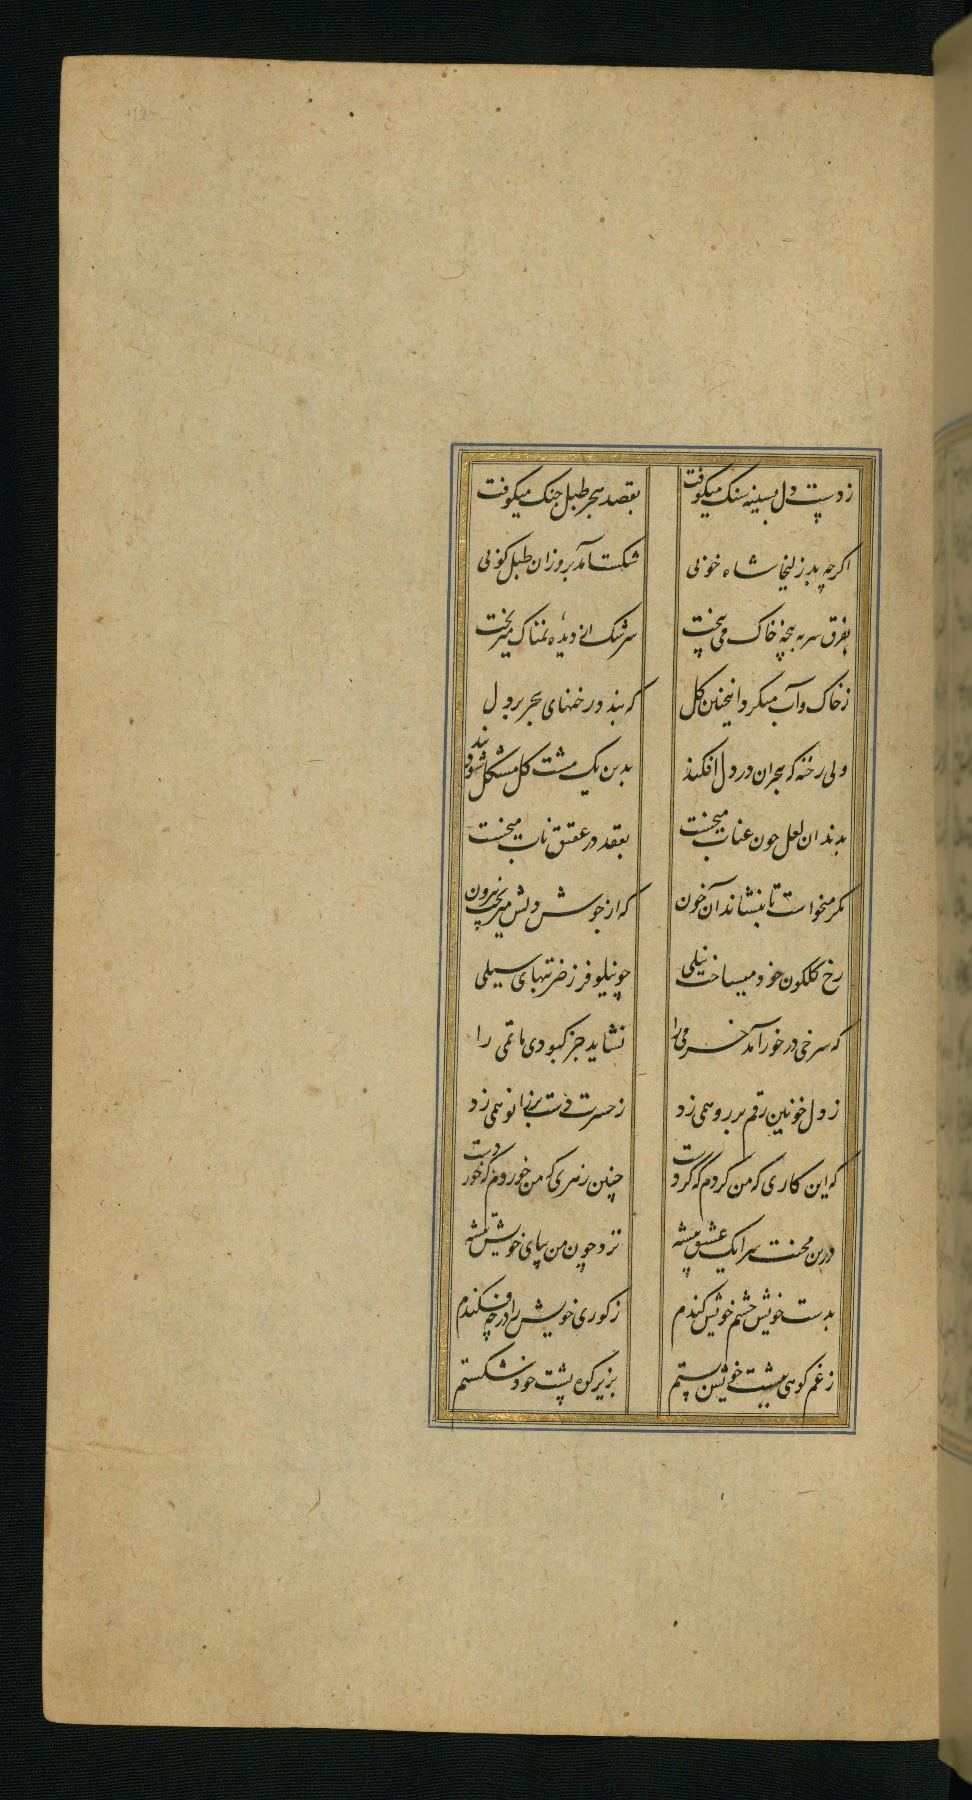 ز دست دل بسینه سنک میکوفت بقصد هجر طبل جنک میکوفت
اکرچه بد زلیخا شاه خوبی شکست آمد بروزان طبل کوبی
بفرق سر به پنجه خاک می بیخت سرشک از دیده نمناک میریخت
ز خاک و آب میکرد اینچنین کل که بندد رخنهای هجر بر دل
ولی رخنه که هجران در دل افکند بدین یک مشت کل مشکل شود بند
بدندان لعل چون عناب میخست بعقد در عقیق ناب میخست
مکر میخواست تا بنشاند آن خون که از جوش دلش میریخت بیرون
رخ کلکون خود میساخت نیلی چو نیلوفر ز ضربتهای سیلی
که سرخی در خور آمد خرمی را نشاید جز کبودی ماتمی را
ز دل خونین رقم بر رو همی زد ز حسرت دست بر زانو همی زد
که این کاری که من کردم که کردست چنین زهری که من خوردم که خوردست
درین محنت سرا یک عشق پیشه نزد چون من بپای خویش تیشه
بدست خویش چشم خویش کندم ز کوری خویش را در چه فکندم
ز غم کوهی بپشت خویش بستم بزیر کوه پشت خود شکستم